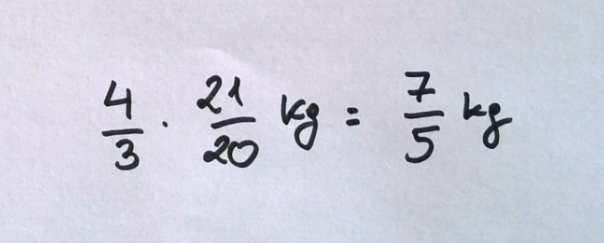 4/3 · 21/20 kg = 7/5 kg